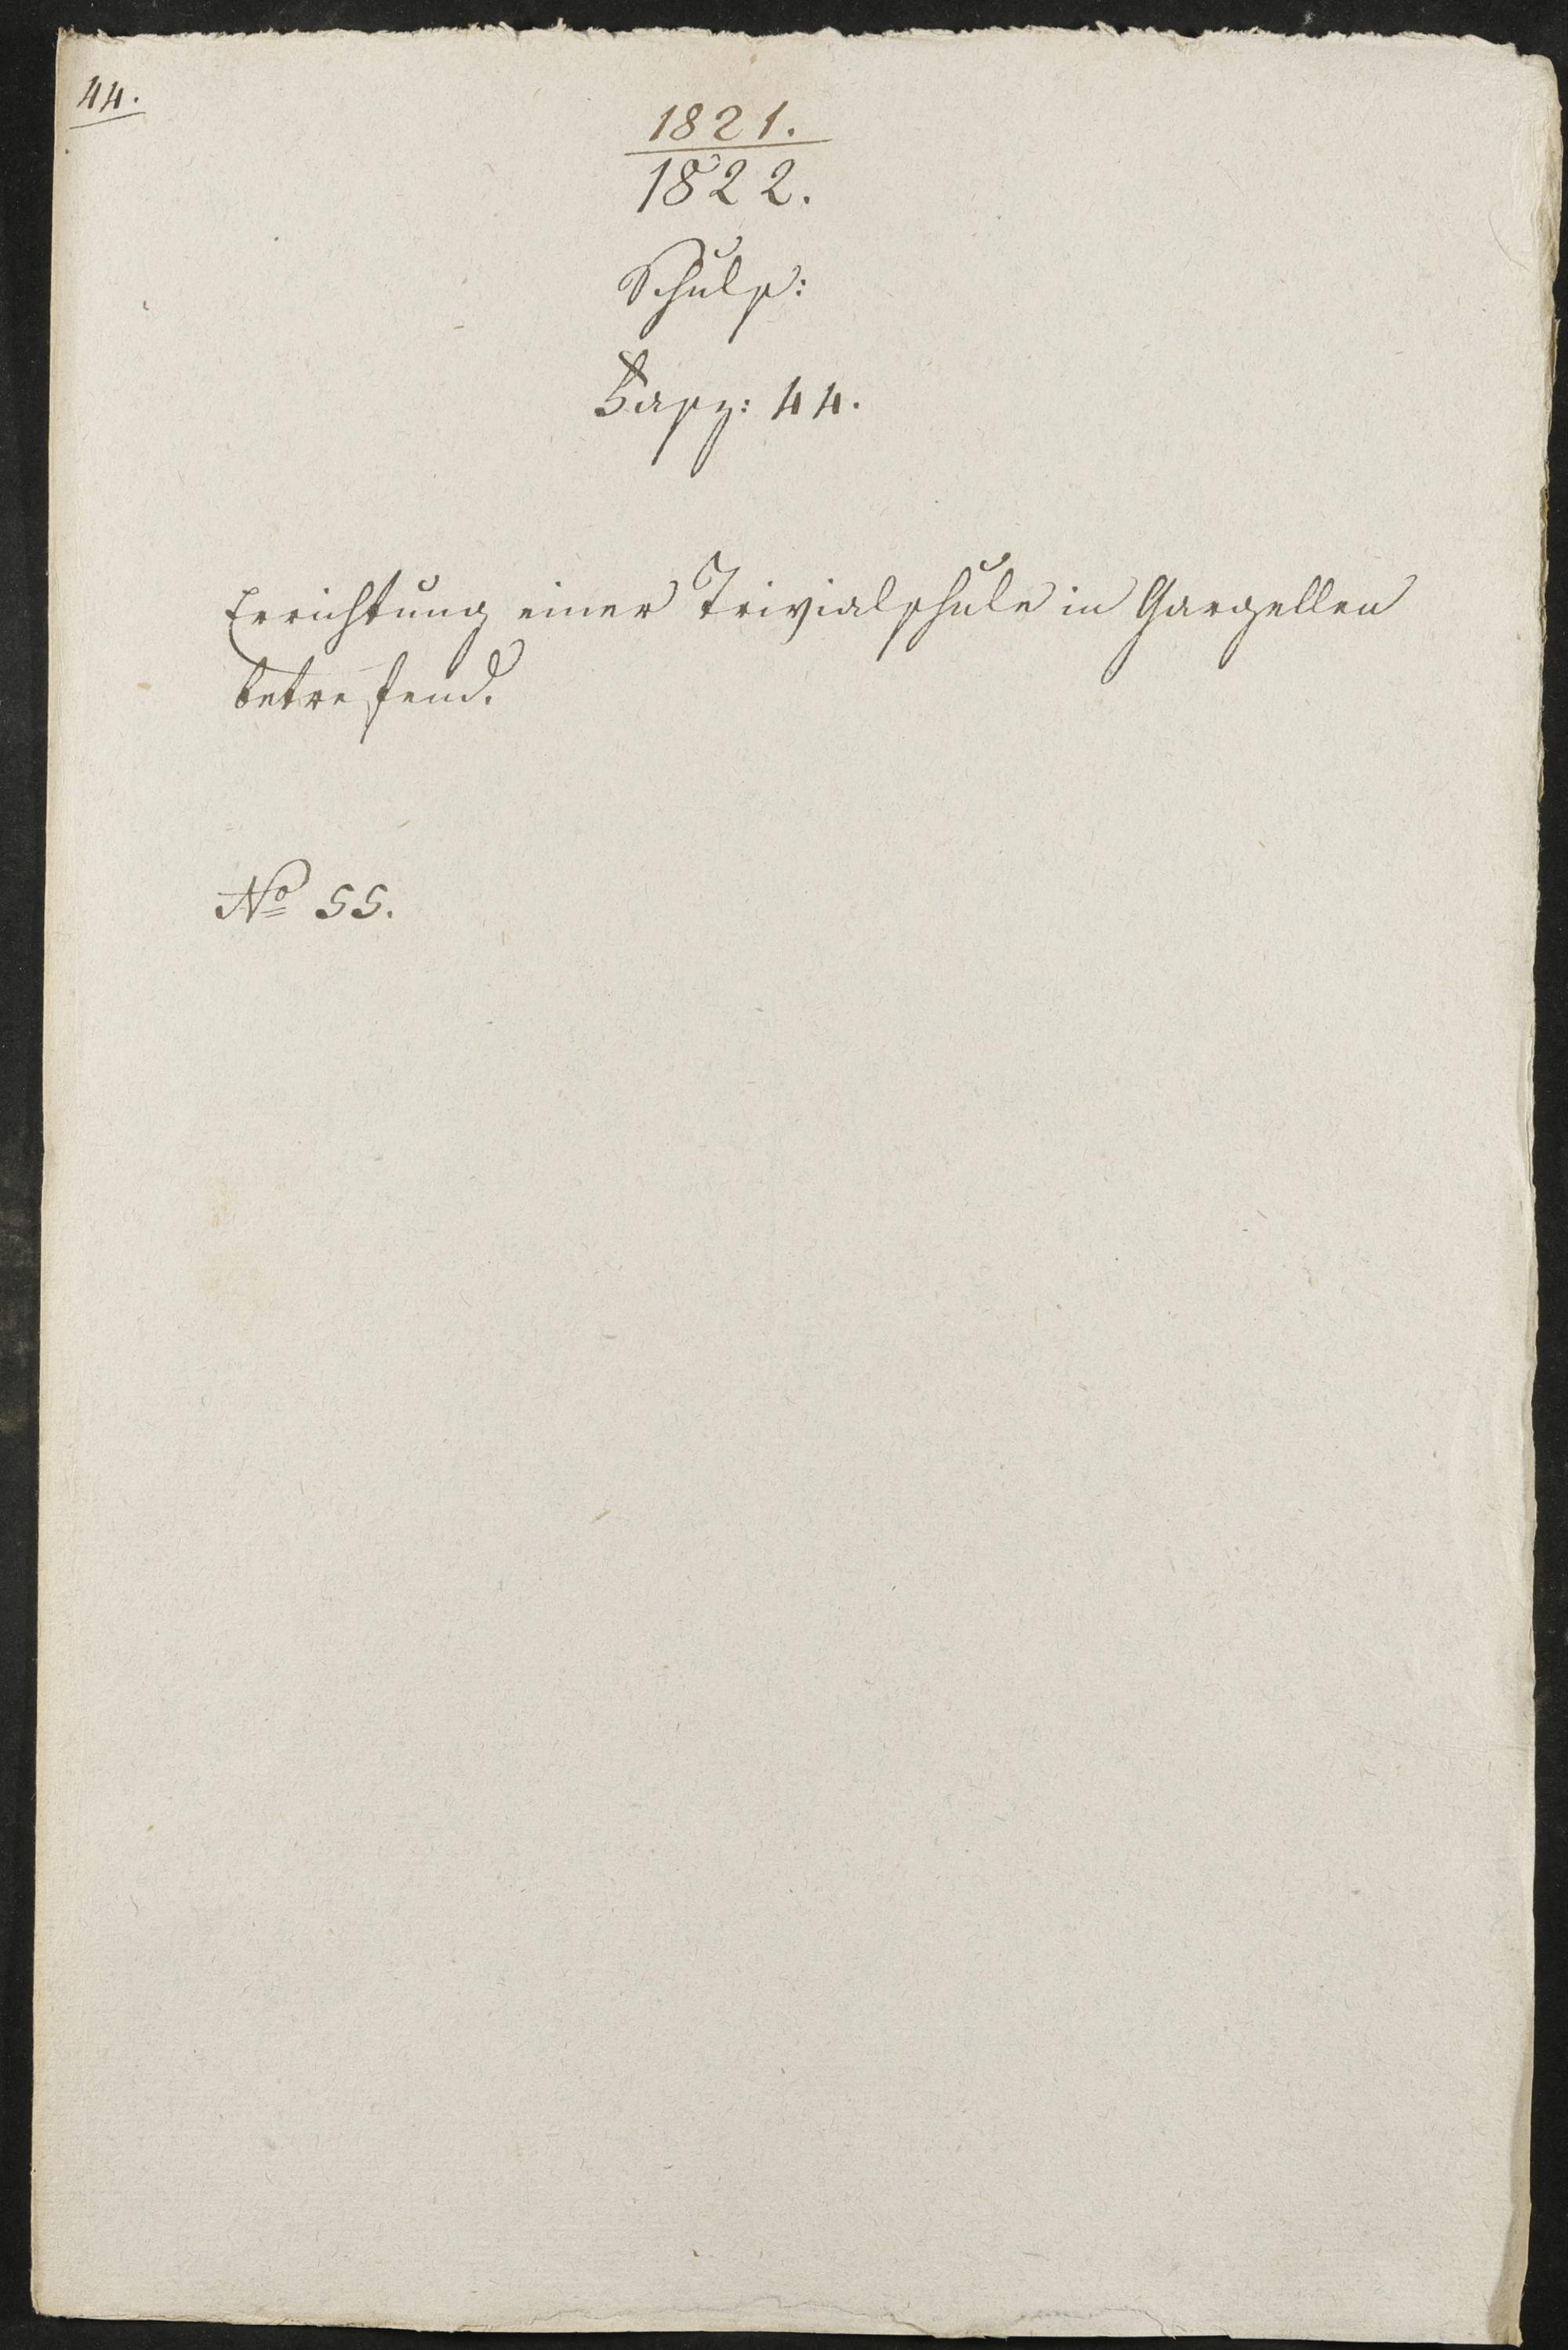 44.
1821.
1822.
Schuls:
Fasz: 44.
Errichtung einer Trivialschule in Gargellen
betrefend.
No 55.